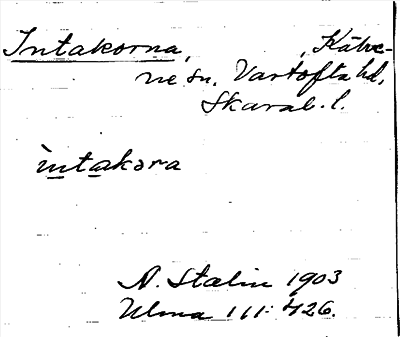 Intakorna, , Kätve-
ne sn, Vartofta hd,
Skarab. l.
ìntakəra
N. Stalin 1903
Ulma 111: 426.